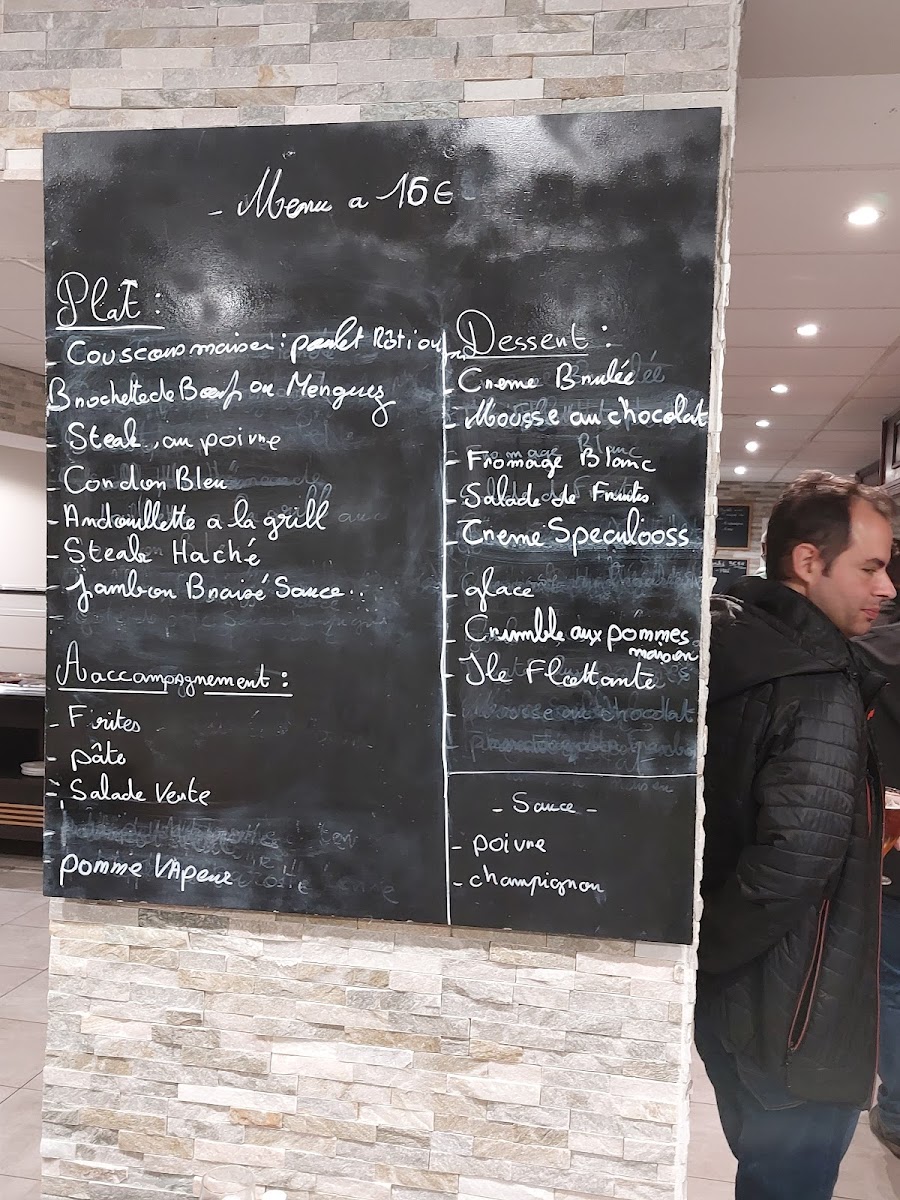 - Menu a 16€ -
Plat :
- Couscous maison : poulet Rôti ou
Brochette de Bœuf ou Merguez
- Steak au poivre
- Cordon Bleu
- Androuillette a la grill
- Steak Haché
- jambon Braisé Sauce..
Aaccompagnement :
- Frites
- pâte
- Salade Verte
- pomme VApeur
Dessert :
- Creme Brulée
- Mousse au chocolat
- Fromage Blanc
- Salade de Fruits
- Creme Speculooss
- glace
- Crumble aux pommes
maison
- Ile Flottante
- Sauce -
- poivre
- champignon